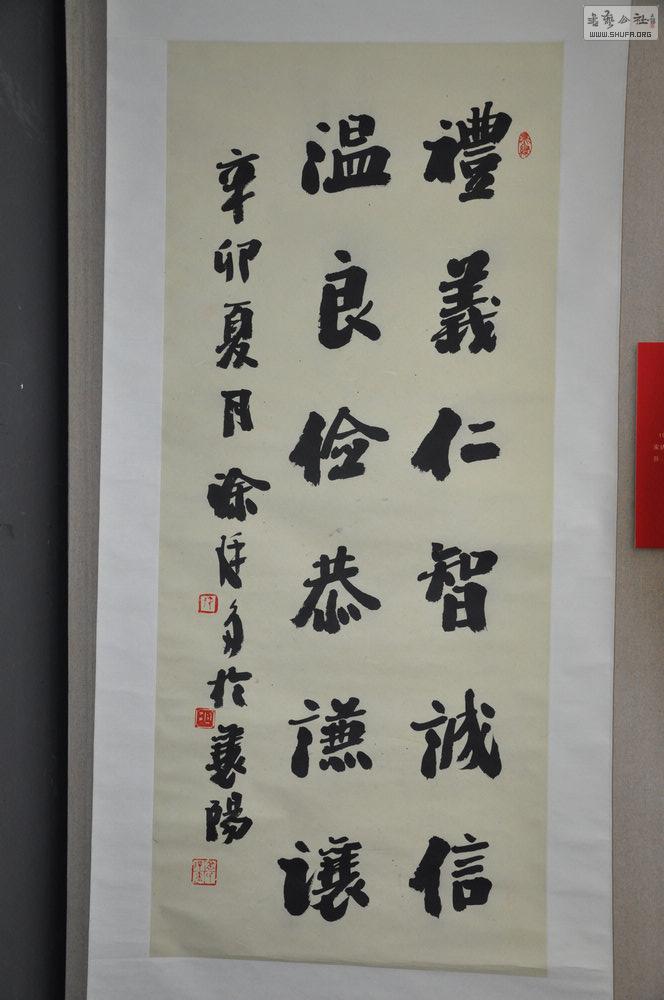 禮義仁智誠信
温良儉恭謙讓
辛卯夏月涂於襄陽
书艺公社
WWW.SHUFA.ORG